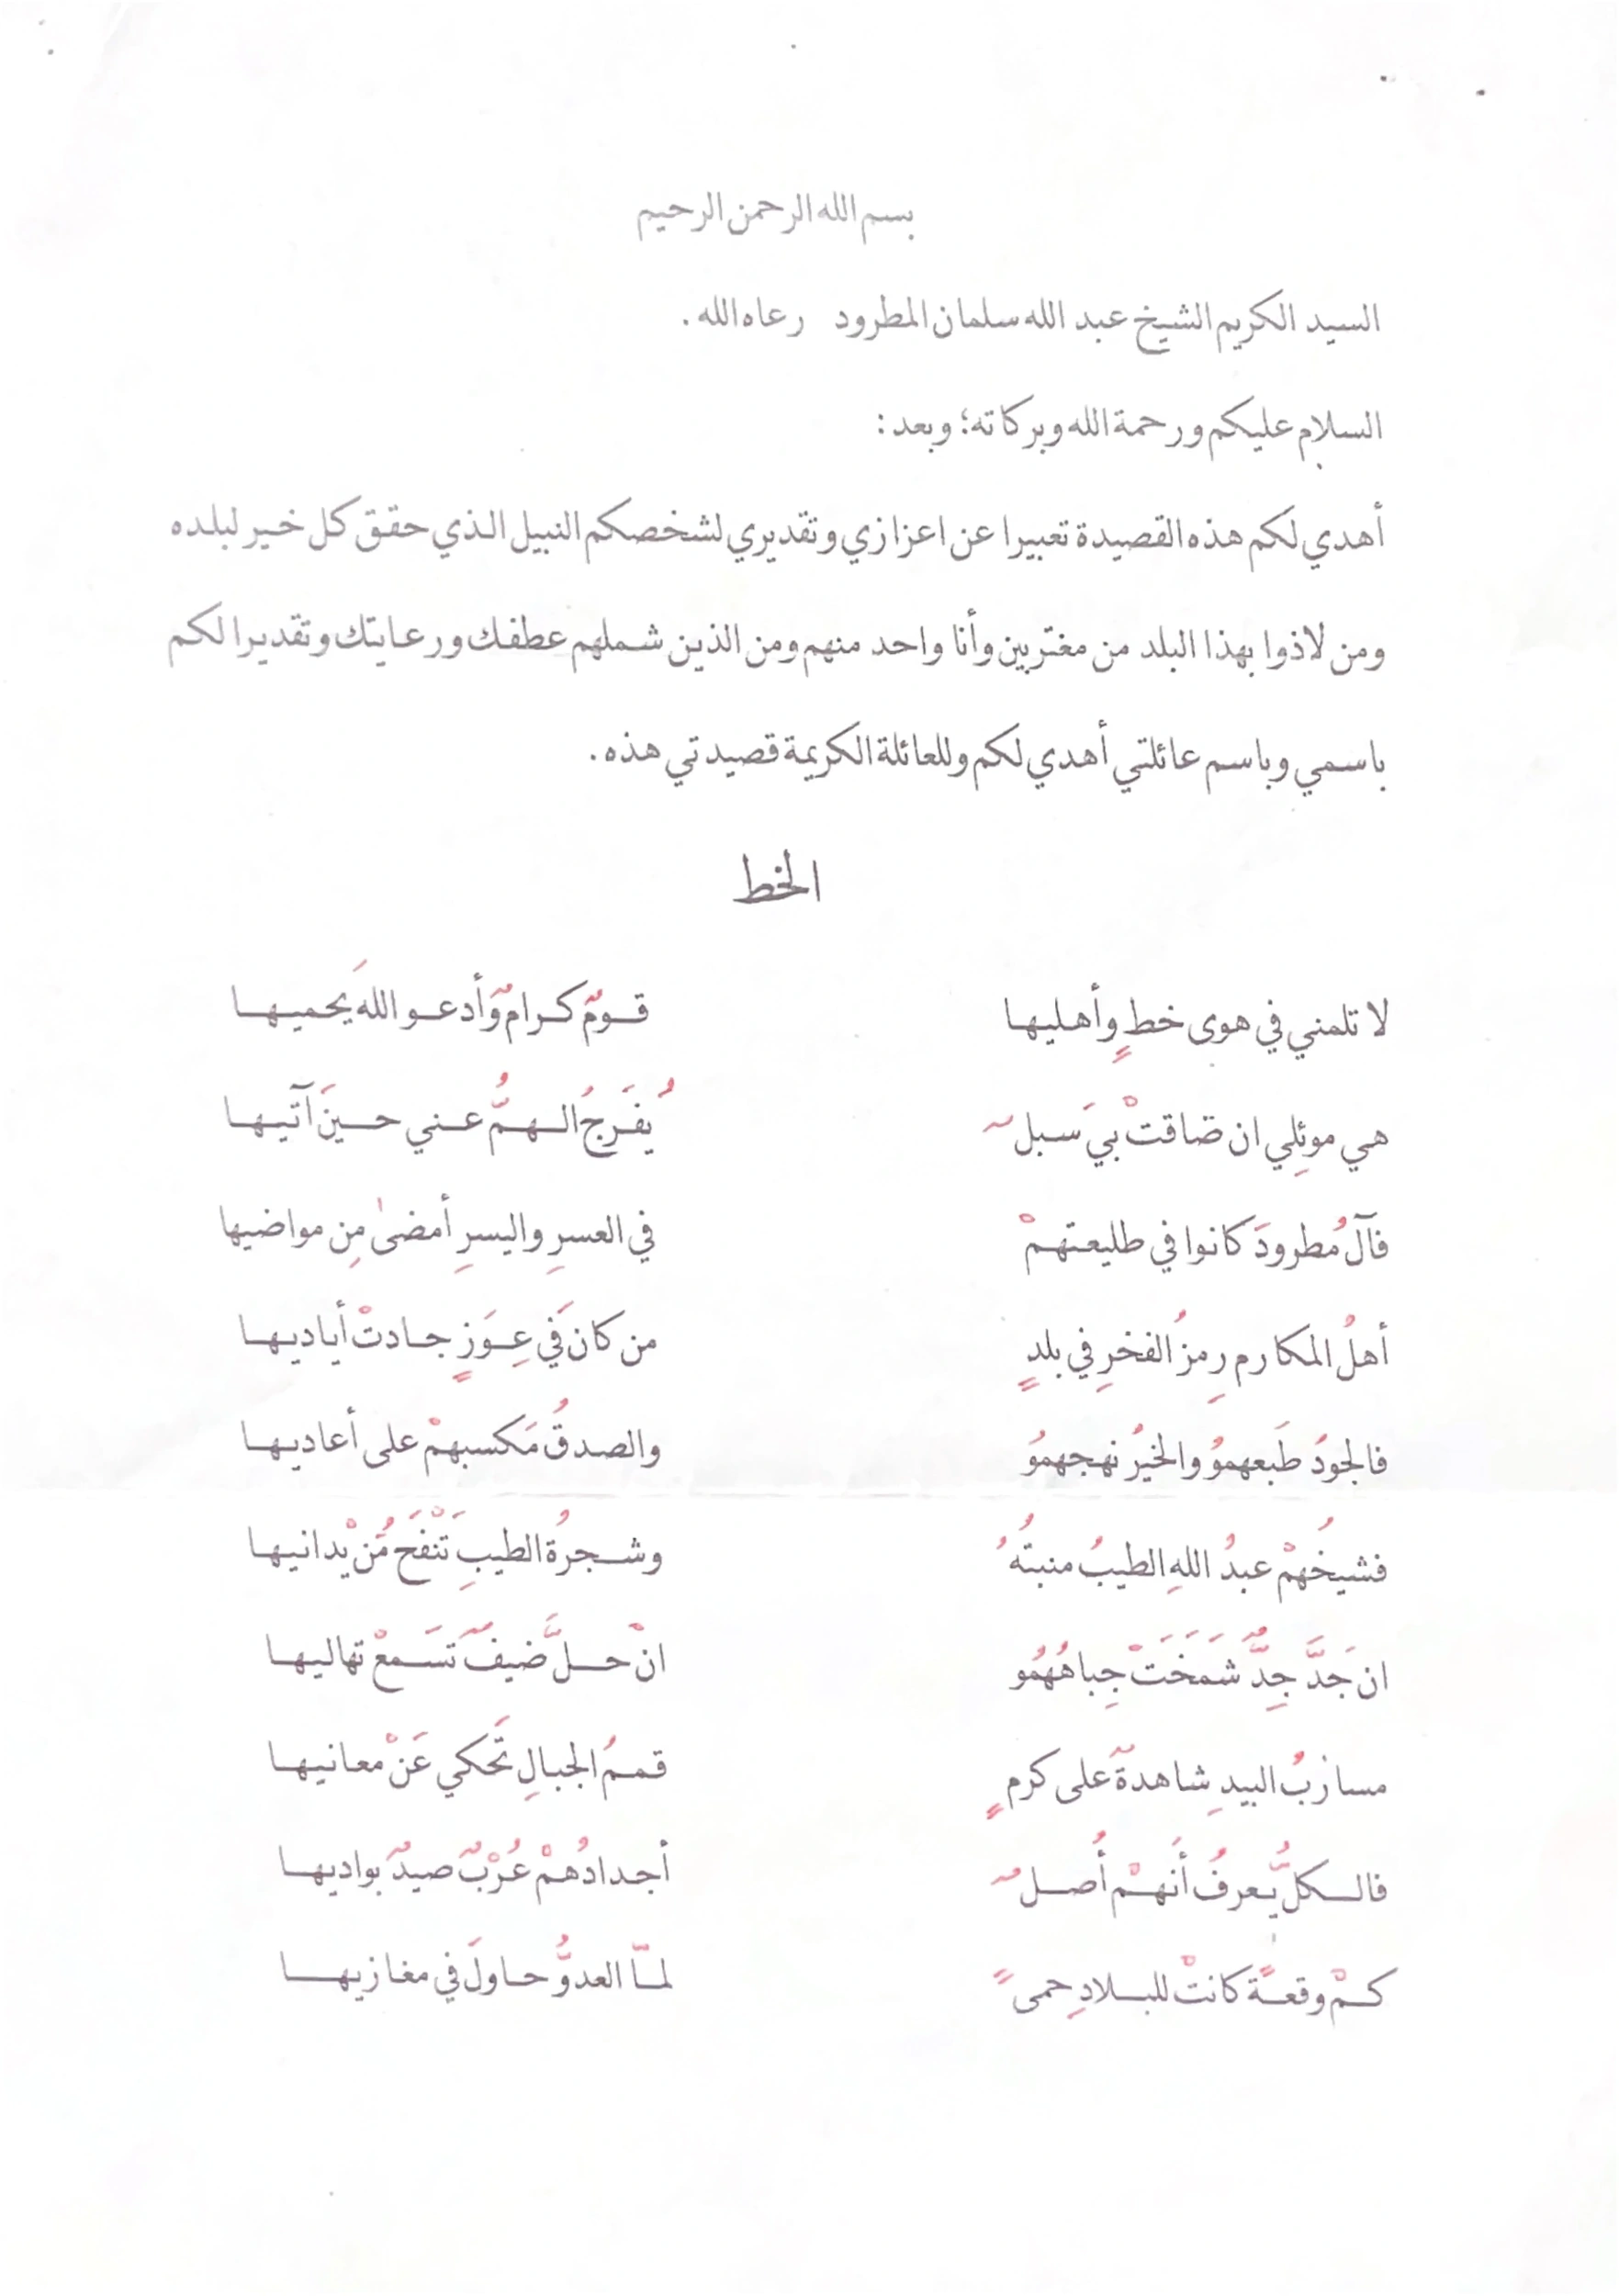 بسم الله الرحمن الرحيم
السيد الكريم الشيخ عبد الله سلمان المطرود رعاه الله .
السلام عليكم ورحمة الله وبركاته؛ وبعد :
أهدي لكم هذه القصيدة تعبيرا عن اعزازي وتقديري لشخصكم النبيل الذي حقق كل خير لبلده
ومن لاذوا بهذا البلد من مغتربين وأنا واحد منهم ومن الذين شملهم عطفك ورعايتك وتقديرا لكم
باسمي وباسم عائلتي أهدي لكم وللعائلة الكريمة قصيدتي هذه .
الخط
لا تلمني في هوى خطٍ وأهليها قومٌ كرامٌ وأدعو اللهَ يحميها
هي موئِلي ان ضاقتْ بيَ سبلٌ يُفَرجُ الهمُّ عني حينَ آتيها
فآلُ مُطرودَ كانوا في طليعتهمْ في العسرِ واليسرِ أمضىٰ مِن مواضيها
أهلُ المكارمِ رمزُ الفخرِ في بلدٍ من كانَ في عِوَزٍ جادتْ أياديها
فالجودُ طَبعهموُ والخيرُ نهجهموُ والصدقُ مَكسبهمْ على أعاديها
فشيخُهمْ عبدُ اللهِ الطيبُ منبتُهُ وشجرةُ الطيبِ تَنْفَحُ مَنْ يدانيها
ان جَدَّ جِدٌّ شَمَخَتْ جِباهُهُمُو انْ حلَّ ضيفٌ تَسَمعْ تهاليها
مساربُ البيدِ شاهدةٌ على كرمٍ قممُ الجبالِ تَحكي عَنْ معانيها
فالكلُّ يَعرفُ أَنهمْ أُصلٌ أجدادُهمْ عُرْبٌ صيدٌ بواديها
كمْ وقعةً كانتْ للبلادِ حمىً لمّا العدوُّ حاولَ في مغازيها